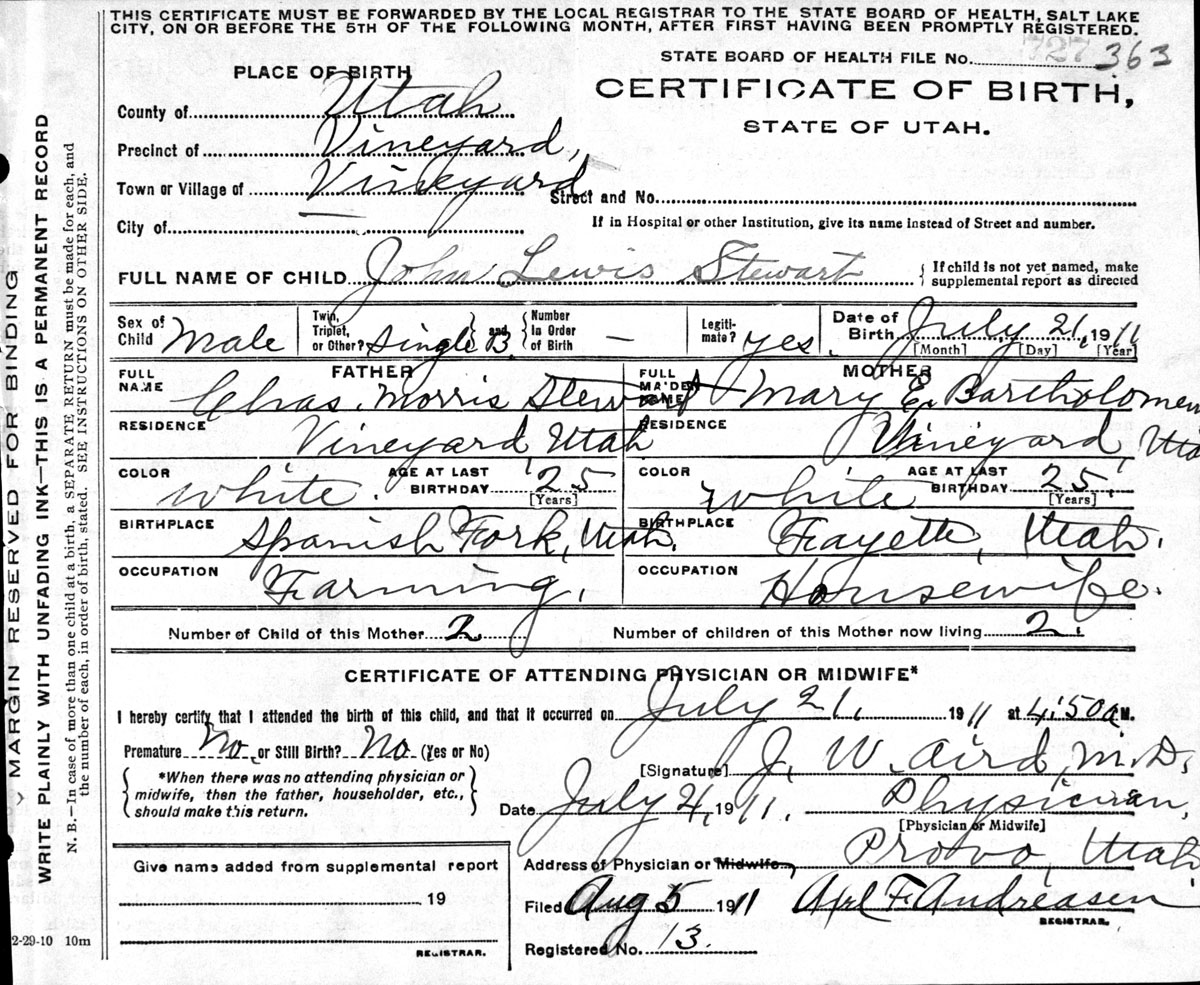 THIS CERTIFICATE MUST BE FORWARDED BY THE LOCAL REGISTRAR TO THE STATE BOARD OF HEALTH, SALT LAKE
CITY, ON OR BEFORE THE 5TH OF THE FOLLOWING MONTH, AFTER FIRST HAVING BEEN PROMPTLY REGISTERED.
STATE BOARD OF HEALTH FILE No. 727 363
PLACE OF BIRTH
CERTIFICATE OF BIRTH,
STATE OF UTAH.
County of Utah
Precinct of Vineyard,
Town or Village of Vineyard Street and No.
City of — If in Hospital or other Institution, give its name instead of Street and number.
FULL NAME OF CHILD John Lewis Stewart { If child is not yet named, make
supplemental report as directed
Sex of Child Male Twin, Triplet, or Other? Single } and { Number In Order of Birth — Legiti-mate? yes. Date of Birth July 21, 1911
[Month] [Day] [Year]
FATHER MOTHER
FULL NAME Chas. Morris Stewart FULL MAIDEN NAME Mary E. Bartholomew
RESIDENCE Vineyard Utah RESIDENCE Vineyard, Uta
COLOR white. AGE AT LAST BIRTHDAY 25 [Years] COLOR White AGE AT LAST BIRTHDAY 25. [Years]
BIRTHPLACE Spanish Fork, Utah. BIRTHPLACE Fayette, Utah.
OCCUPATION Farming, OCCUPATION Housewife.
Number of Child of this Mother 2 Number of children of this Mother now living 2.
CERTIFICATE OF ATTENDING PHYSICIAN OR MIDWIFE*
I hereby certify that I attended the birth of this child, and that it occurred on July 21, 1911 at 4:50 a M.
Premature No or Still Birth? No (Yes or No)
{ *When there was no attending physician or
midwife, then the father, householder, etc.,
should make this return. }
[Signature] J. W. Aird, M.D.
Date July 21, 1911. Physician,
[Physician or Midwife]
Address of Physician or Midwife, Provo, Utah
Filed Aug 5 1911 F. Andreasen
REGISTRAR.
Registered No. 13.
Give name added from supplemental report
19
REGISTRAR.
2-29-10 10m
MARGIN RESERVED FOR BINDING
WRITE PLAINLY WITH UNFADING INK—THIS IS A PERMANENT RECORD
N. B.—In case of more than one child at a birth, a SEPARATE RETURN must be made for each, and
the number of each, in order of birth, stated. SEE INSTRUCTIONS ON OTHER SIDE.